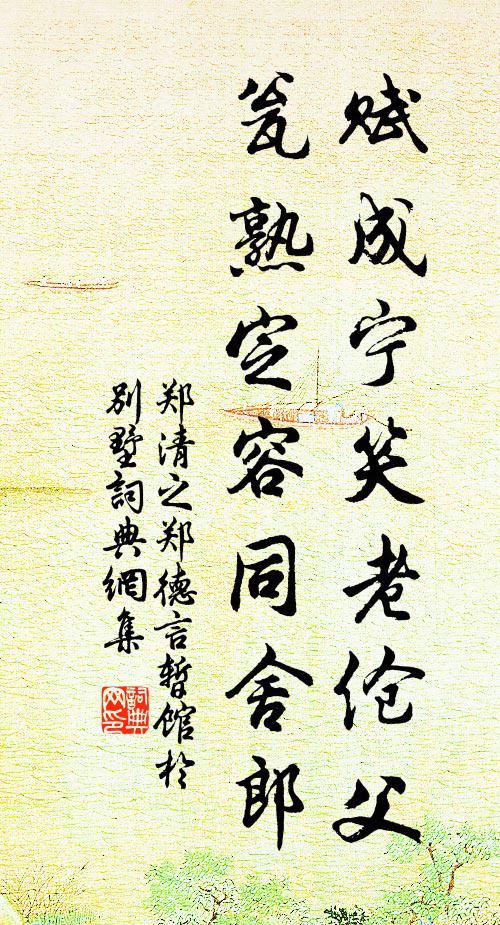 赋成宁笑老伧父
瓮熟定容同舍郎
郑清之郑德言暂馆於
别墅词典網集
詞典
网印